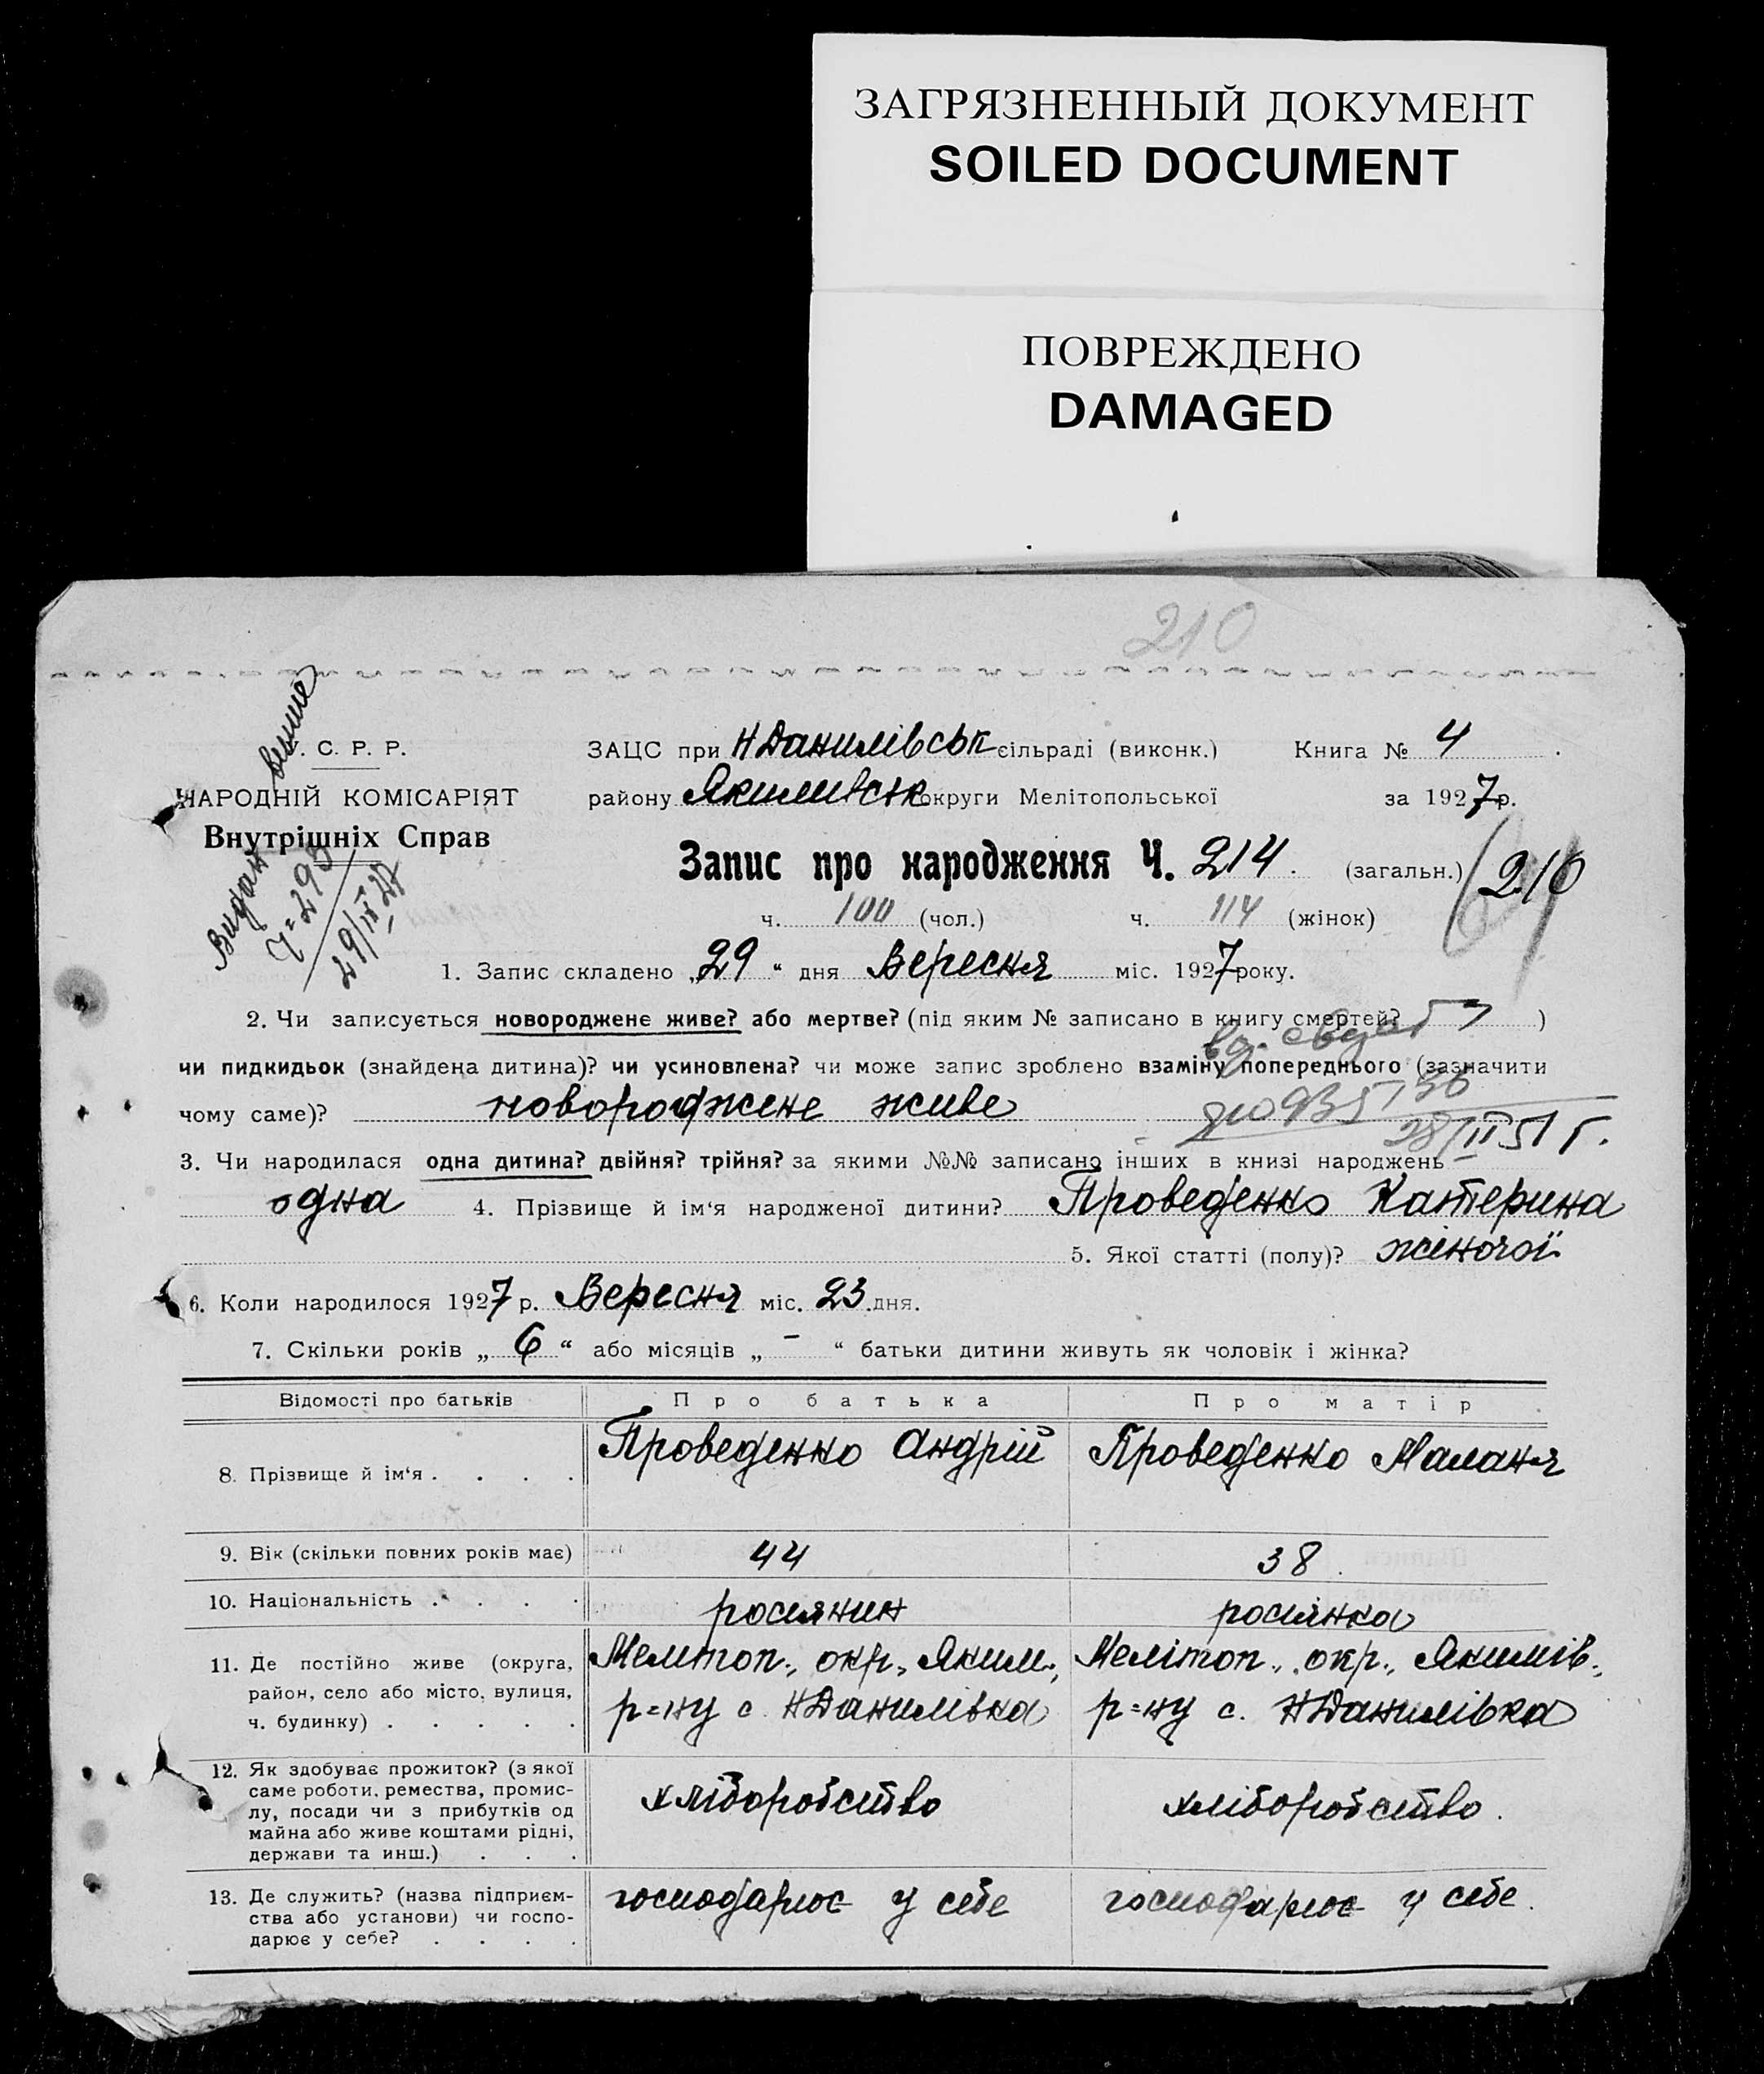 ЗАГРЯЗНЕННЫЙ ДОКУМЕНТ
SOILED DOCUMENT
ПОВРЕЖДЕНО
DAMAGED
210
У. С. Р. Р.
НАРОДНІЙ КОМІСАРІЯТ
Внутрішніх Справ
Видан
Ч=295
29/IX 27
ЗАЦС при НДанилівськ сільраді (виконк.) Книга № 4
району Якимивськ округи Мелітопольської за 1927 р.
Запис про народження Ч. 214. (загальн.) 210
ч. 100 (чол.) ч. 114 (жінок)
1. Запис складено „29“ дня Вересня міс. 1927 року.
2. Чи записується новороджене живе? або мертве? (під яким № записано в книгу смертей? )
чи пидкидьок (знайдена дитина)? чи усиновлена? чи може запис зроблено взаміну попереднього (зазначити
чому саме)? новороджене живе
28/II 51 г.
3. Чи народилася одна дитина? двійня? трійня? за якими №№ записано інших в книзі народжень
одна 4. Прізвище й ім‘я народженої дитини? Проведенко Катерина
5. Якої статті (полу)? жіночої
6. Коли народилося 1927 р. Вересня міс. 23 дня.
7. Скільки років „ 6 “ або місяців „ - “ батьки дитини живуть як чоловік і жінка?
Відомості про батьків Про батька Про матір
8. Прізвище й ім‘я . . . . Проведенко Андрій Проведенко Маланя
9. Вік (скільки повних років має) 44 38
10. Національність . . . . росиянин росиянка
11. Де постійно живе (округа, Мелитоп., окр., Яким., Мелітоп., окр., Якимів.,
район, село або місто, вулиця, р=ну с. НДанилівка р=ну с. НДанилівка
ч. будинку) . . . . .
12. Як здобуває прожиток? (з якої
саме роботи, ремества, промис-
лу, посади чи з прибутків од хліборобство хліборобство.
майна або живе коштами рідні,
держави та инш.) . . .
13. Де служить? (назва підприєм- господарює у себе господарює у себе.
ства або установи) чи госпо-
дарює у себе? . . . .